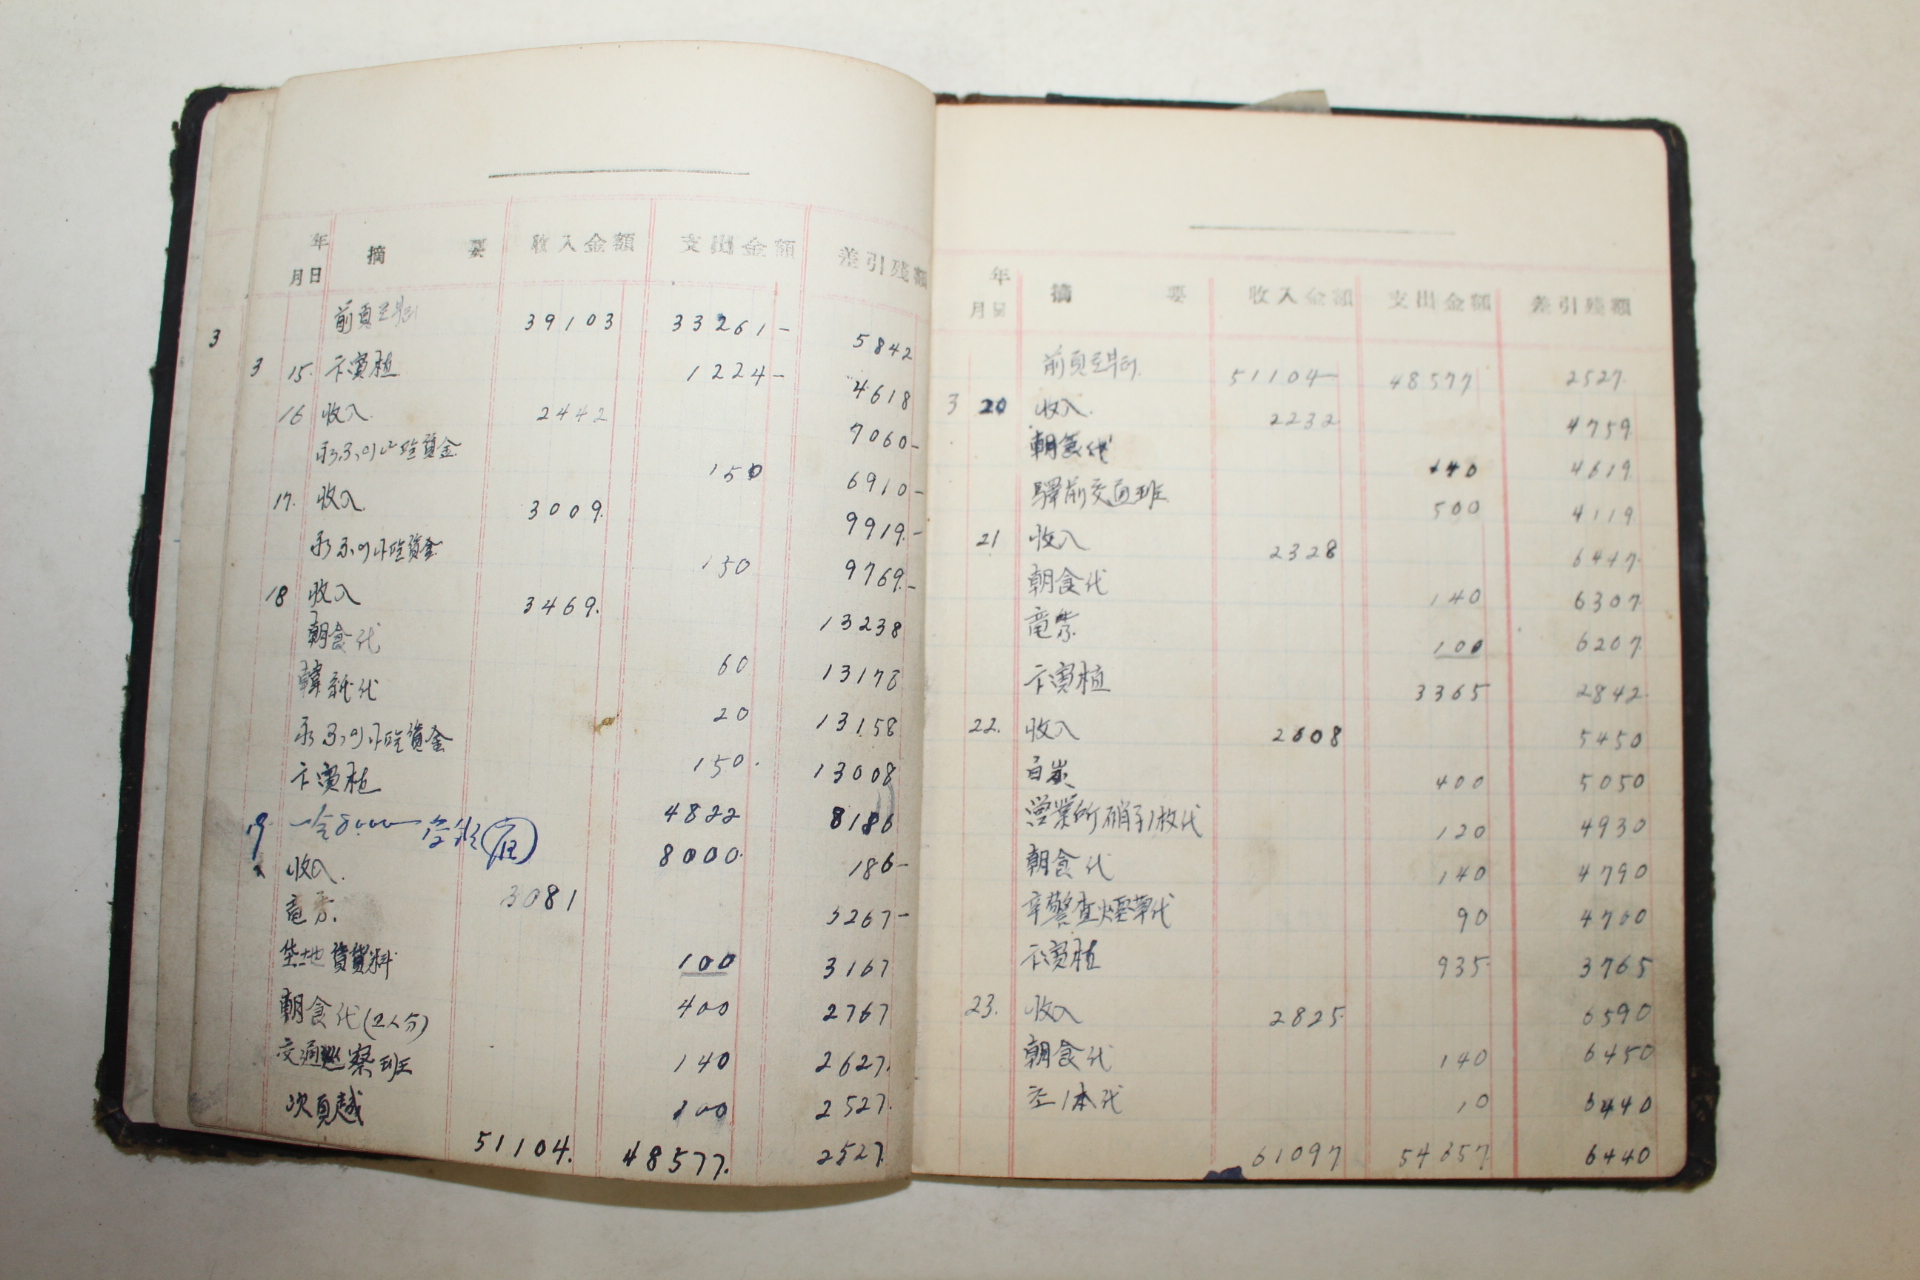 年
月日 摘 要 收入金額 支出金額 差引残額
前頁로부터 39103 33261- 5842
3
3 15. 卞濱植 1224- 4618
16 收入. 2442 7060-
資金 150 6910-
17. 收入 3009. 9919.-
資金 150 9769.-
18 收入 3469. 13238
朝食代 60 13178
韓紙代 20 13158
資金 150. 13008
卞濱植 4822 8186
19 一金8000 8000. 186-
收入. 3081 3267-
100 3167
垈地賃貸料 400 2767
朝食代(2人分) 140 2627.
交通巡察班 100 2527.
次頁越 51104. 48577. 2527.
年
月日 摘 要 收入金額 支出金額 差引残額
前頁로부터. 51104- 48577 2527.
3 20 收入. 2232 4759
朝食代 140 4619
驛前交通班 500 4119
21 收入 2328 6447.
朝食代 140 6307
100 6207
卞濱植 3365 2842.
22. 收入 2608 5450
白炭 400 5050
営業所硝子1枚代 120 4930
朝食代 140 4790
辛警査煙草代 90 4700
卞濱植 935 3765
23. 收入 2825 6590
朝食代 140 6450
1本代 10 6440
61097 54657 6440